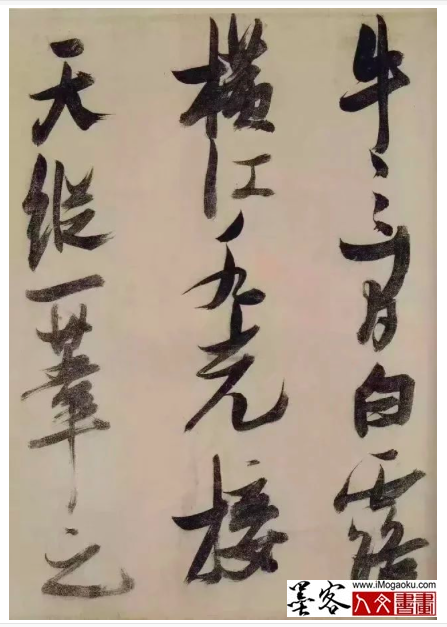 牛之間白露
橫江水光接
天縱一葦之
墨客
www.iMogaoku.com
人文書畫